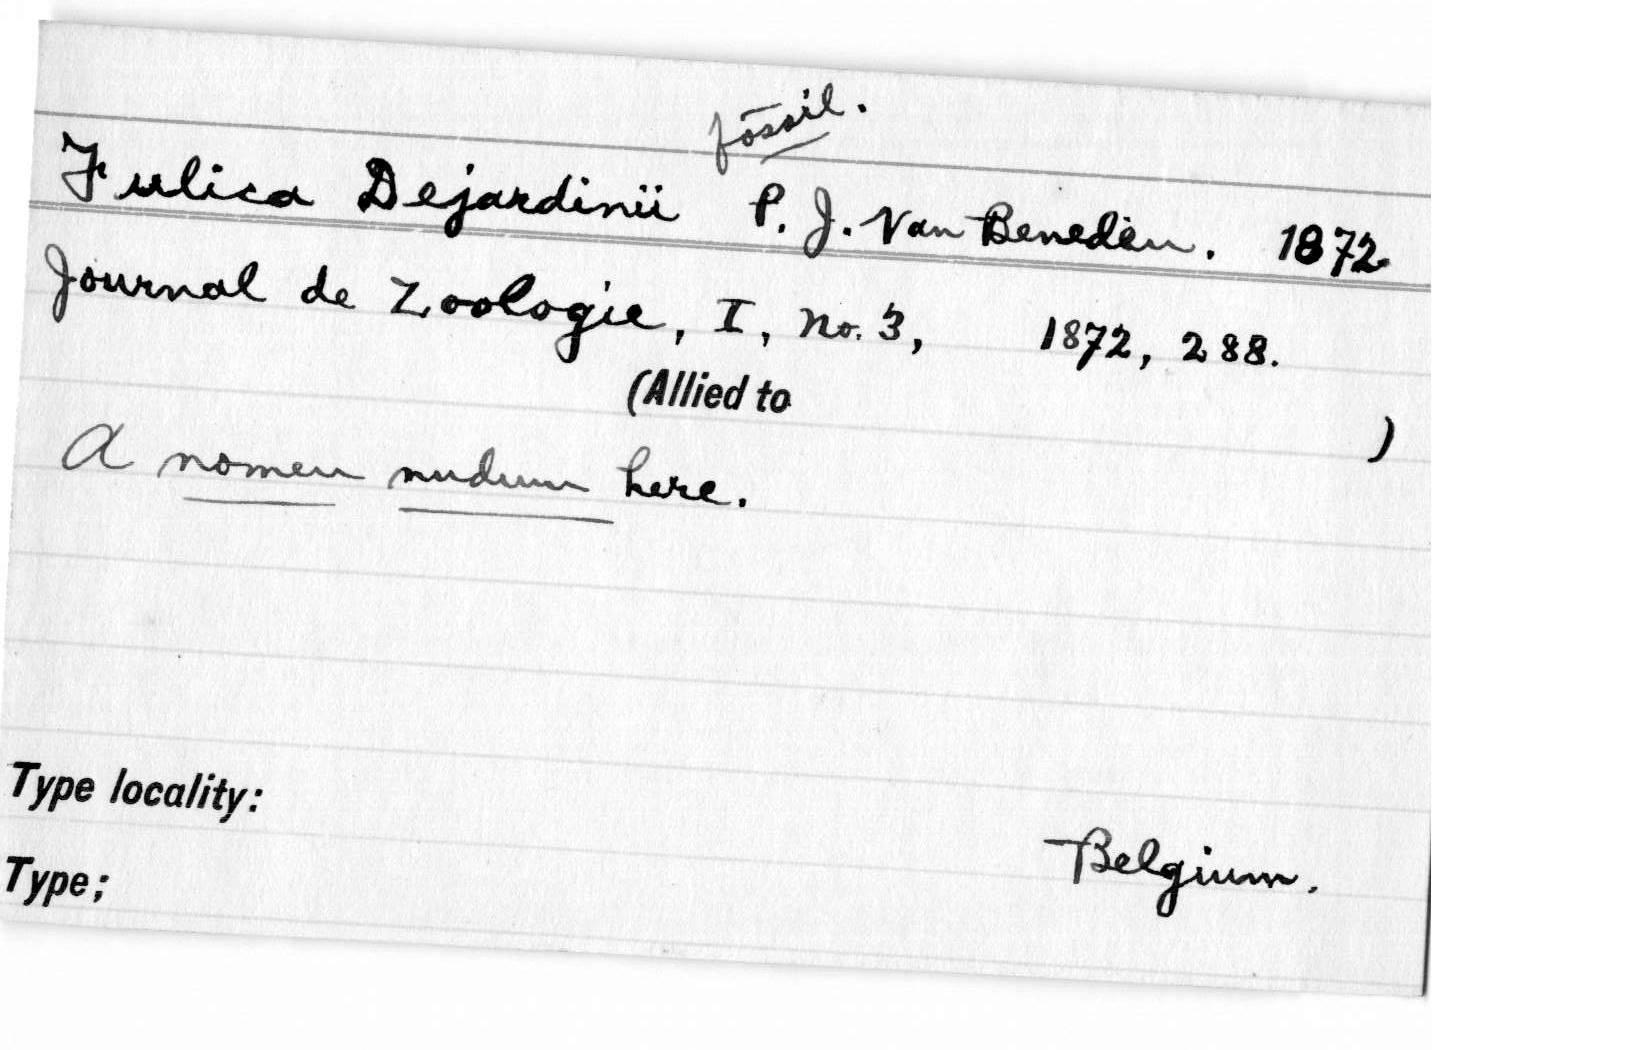 fossil.
Fulica Dejardinii P. J. Van Beneden. 1872
Journal de Zoologie, I, no. 3, 1872, 288.
(Allied to )
A nomen nudum here.
Type locality:
Belgium.
Type;